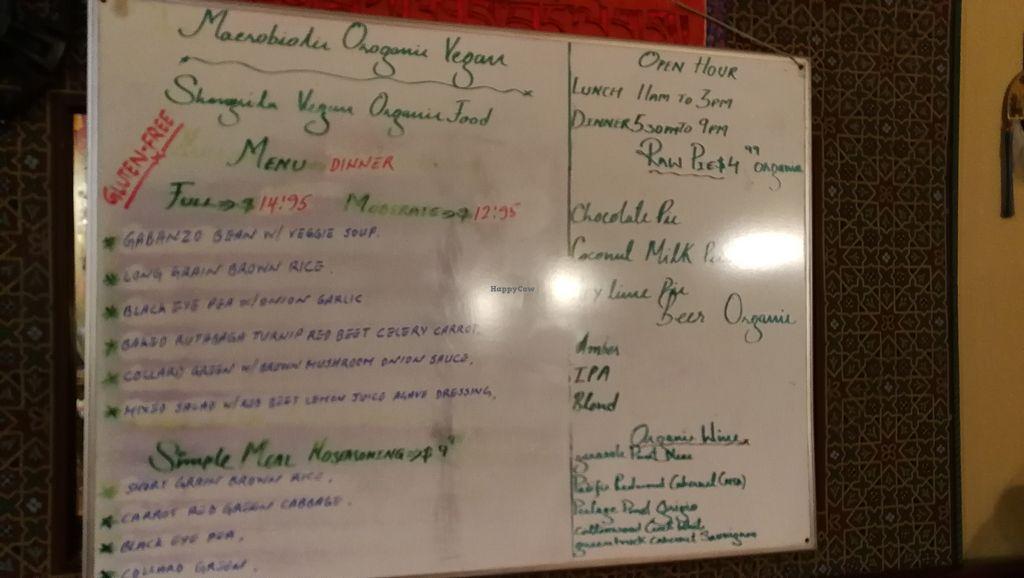 Macrobiotic Oroganic Vegan
Shangrila Vegan Organic Food
GLUTEN-FREE
MENU DINNER
FULL → $ 14.95 MODERATE → $ 12.95
GABANZO BEAN W/ VEGGIE SOUP.
LONG GRAIN BROWN RICE.
BLACK EYE PEA W/ ONION GARLIC
BAKED RUTABAGA TURNIP RED BEET CELERY CARROT.
COLLARD GREEN W/ BROWN MUSHROOM ONION SAUCE.
MIXED SALAD W/ RED BEET LEMON JUICE AGAVE DRESSING.
SIMPLE MEAL NO SEASONING → $ 9
SHORT GRAIN BROWN RICE.
CARROT RED GREEN CABBAGE.
BLACK EYE PEA.
COLLARD GREEN.
OPEN HOUR
LUNCH 11AM TO 3PM
DINNER 530PM TO 9PM
RAW PIE $4 99 Organic
Chocolate Pie
Coconut Milk
lime Pie
Beer Organic
Amber
IPA
Blond
Organic Wine
Pacific Redwood Cabernet
Cottonwood Creek
Cabernet Sauvignon
HappyCow